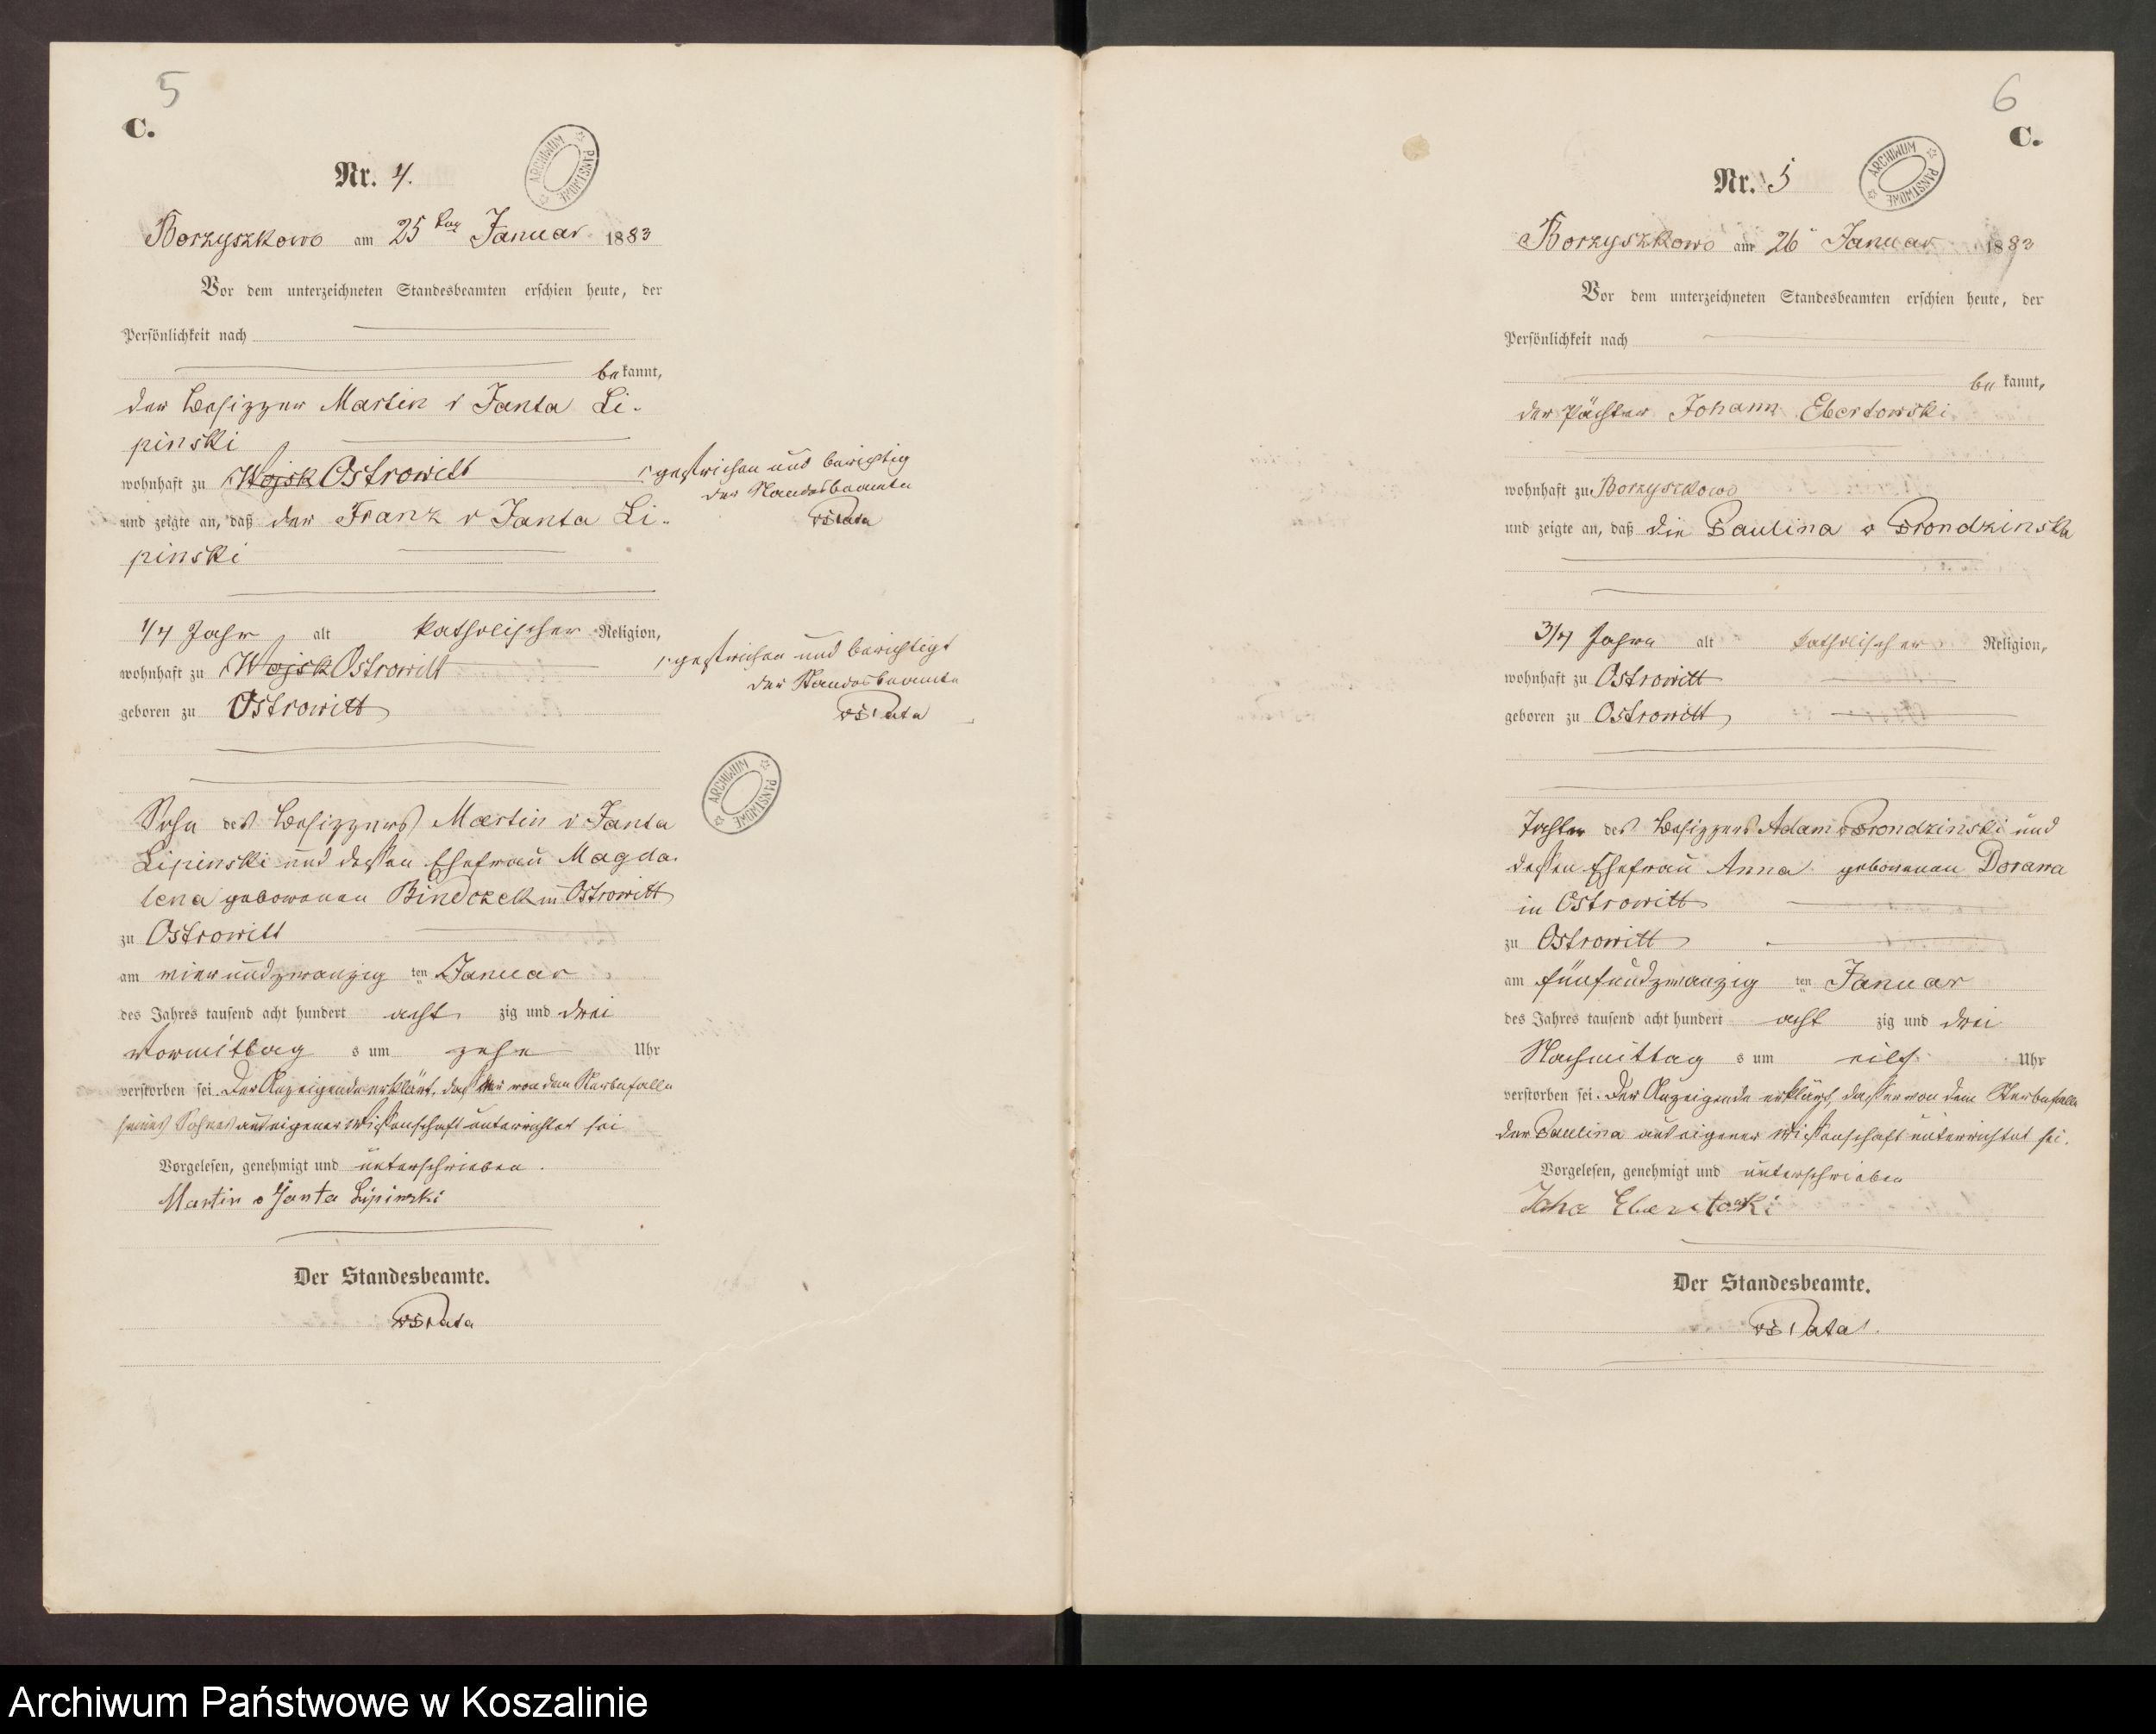 5
C.
ARCHIWUM PAŃSTWOWE
Nr. 4.
Borzyszkowo am 25 ten Januar 1883
Vor dem unterzeichneten Standesbeamten erschien heute, der
Persönlichkeit nach
be kannt,
der Besizzer Martin v Janta Li-
pinski
wohnhaft zu Wojsk Ostrowitt
und zeigte an, daß der Franz v Janta Li-
pinski
1/4 Jahr alt katholischer Religion,
wohnhaft zu Wojsk Ostrowitt
geboren zu Ostrowitt
Sohn des Besizzers Martin v Janta
Lipinski und dessen Ehefrau Magda-
lena geborenen Bindczek in Ostrowitt
zu Ostrowitt
am vierundzwanzig ten Januar
des Jahres tausend acht hundert acht zig und drei
Vormittag s um zehn Uhr
verstorben sei. Der Anzeigende erklärt, daß er von dem Sterbefalle
seines Sohnes aus eigener Wissenschaft unterrichtet sei
Vorgelesen, genehmigt und unterschrieben.
Martin v Janta Lipinski
Der Standesbeamte.
gestrichen und berichtig
der Standesbeamte
gestrichen und berichtigt
der Standesbeamte
ARCHIWUM PAŃSTWOWE
6
C.
ARCHIWUM PAŃSTWOWE
Nr. 5
Borzyszkowo am 26 Januar 1883
Vor dem unterzeichneten Standesbeamten erschien heute, der
Persönlichkeit nach
be kannt,
der Pächter Johann Ebertowski
wohnhaft zu Borzyszkowo
und zeigte an, daß die Paulina v Prondzinska
3/4 Jahre alt katholischer Religion,
wohnhaft zu Ostrowitt
geboren zu Ostrowitt
Tochter des Besizzers Adam v Prondzinski und
dessen Ehefrau Anna geborenen Dorawa
in Ostrowitt
zu Ostrowitt
am fünfundzwanzig ten Januar
des Jahres tausend acht hundert acht zig und drei
Nachmittag s um eilf Uhr
verstorben sei. Der Anzeigende erklärt, daß er von dem Sterbefalle
der Paulina aus eigener Wissenschaft unterrichtet sei.
Vorgelesen, genehmigt und unterschrieben
Der Standesbeamte.
Archiwum Państwowe w Koszalinie